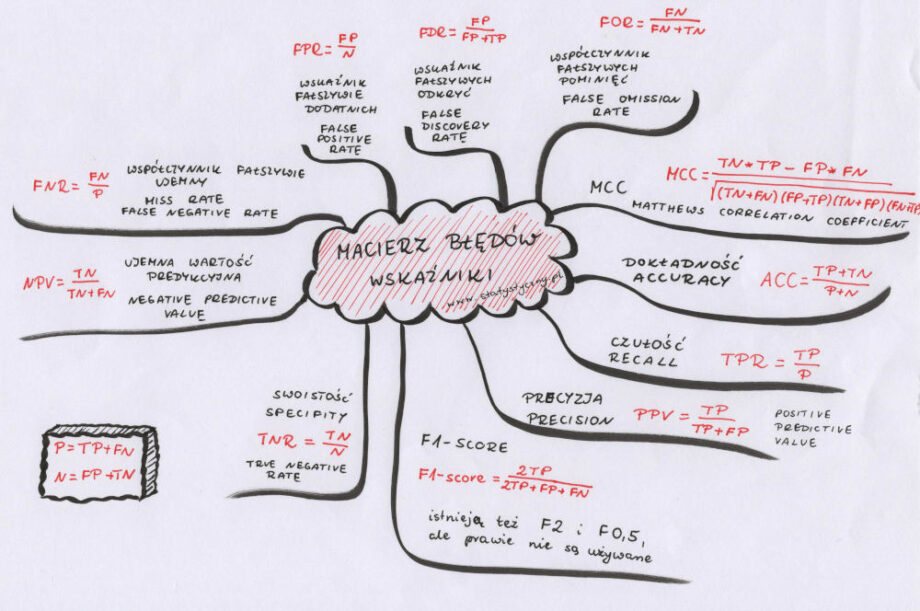 MACIERZ BŁĘDÓW
WSKAŹNIKI
www.statystyczny.pl
FPR = FP/N
WSKAŹNIK
FAŁSZYWIE
DODATNICH
FALSE
POSITIVE
RATE
FDR = FP/FP+TP
WSKAŹNIK
FAŁSZYWYCH
ODKRYĆ
FALSE
DISCOVERY
RATE
FOR = FN/FN+TN
WSPÓŁCZYNNIK
FAŁSZYWYCH
POMINIĘĆ
FALSE OMISSION
RATE
MCC
MCC = TN*TP - FP*FN/√(TN+FN)(FP+TP)(TN+FP)(FN+TP)
MATTHEWS CORRELATION COEFFICIENT
DOKŁADNOŚĆ
ACCURACY
ACC = TP+TN/P+N
CZUŁOŚĆ
RECALL
TPR = TP/P
PRECYZJA
PRECISION
PPV = TP/TP+FP
POSITIVE
PREDICTIVE
VALUE
F1-SCORE
F1-score = 2TP/2TP+FP+FN
istnieją też F2 i F0,5,
ale prawie nie są używane
SWOISTOŚĆ
SPECIFITY
TNR = TN/N
TRUE NEGATIVE
RATE
NPV = TN/TN+FN
UJEMNA WARTOŚĆ
PREDYKCYJNA
NEGATIVE PREDICTIVE
VALUE
FNR = FN/P
WSPÓŁCZYNNIK FAŁSZYWIE
UJEMNY
MISS RATE
FALSE NEGATIVE RATE
P = TP+FN
N = FP+TN